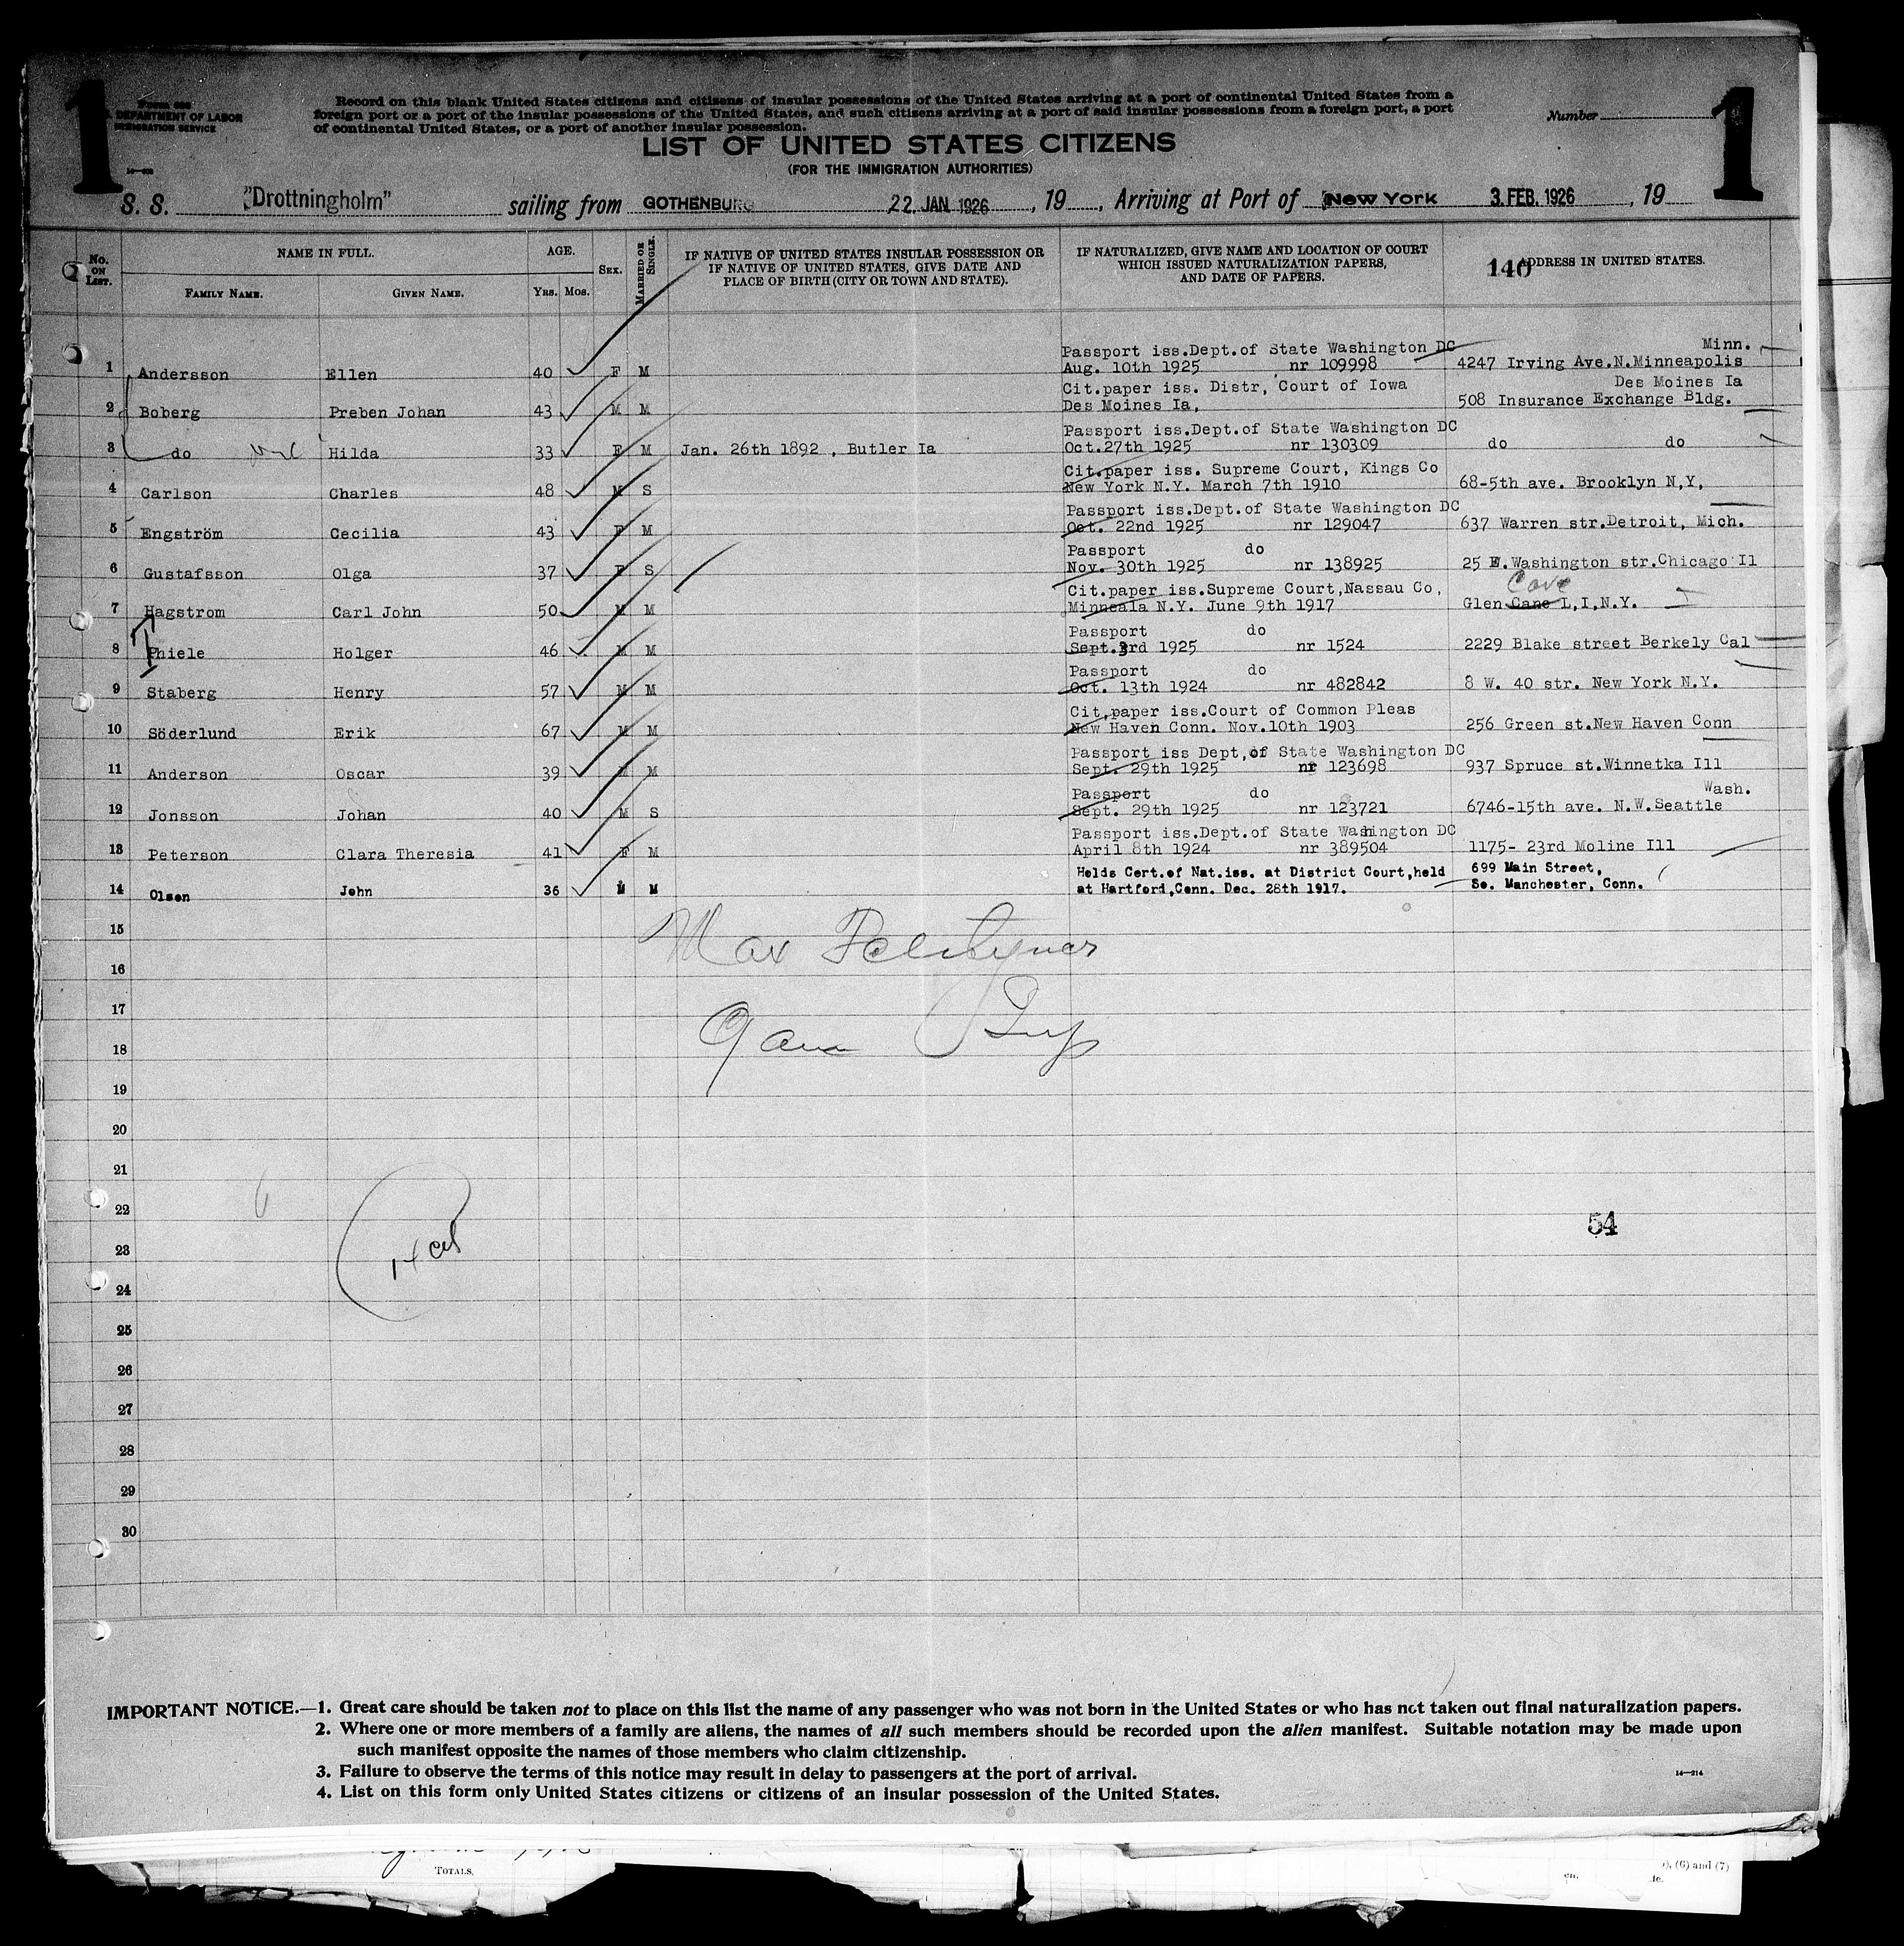 1 1
Form 630
U. S. DEPARTMENT OF LABOR
IMMIGRATION SERVICE
Record on this blank United States citizens and citizens of insular possessions of the United States arriving at a port of continental United States from a
foreign port or a port of the insular possessions of the United States, and such citizens arriving at a port of said insular possessions from a foreign port, a port
of continental United States, or a port of another insular possession.
Number
LIST OF UNITED STATES CITIZENS
(FOR THE IMMIGRATION AUTHORITIES)
S. S. "Drottningholm" sailing from GOTHENBURG 22. JAN. 1926, 19 , Arriving at Port of New York 3. FEB. 1926, 19
No. ON LIST. NAME IN FULL. FAMILY NAME. GIVEN NAME. AGE. YRS. MOS. SEX. MARRIED OR SINGLE.
IF NATIVE OF UNITED STATES INSULAR POSSESSION OR
IF NATIVE OF UNITED STATES, GIVE DATE AND
PLACE OF BIRTH (CITY OR TOWN AND STATE).
IF NATURALIZED, GIVE NAME AND LOCATION OF COURT
WHICH ISSUED NATURALIZATION PAPERS,
AND DATE OF PAPERS.
140
ADDRESS IN UNITED STATES.
Passport iss.Dept.of State Washington DC Minn.
1 Andersson Ellen 40 F M Aug. 10th 1925 nr 109998 4247 Irving Ave.N.Minneapolis
Cit.paper iss. Distr, Court of Iowa Des Moines Ia
2 Boberg Preben Johan 43 M M Des Moines Ia, 508 Insurance Exchange Bldg.
Passport iss.Dept.of State Washington DC
3 do Hilda 33 F M Jan. 26th 1892 , Butler Ia Oct.27th 1925 nr 130309 do do
Cit.paper iss. Supreme Court, Kings Co
4 Carlson Charles 48 M S New York N.Y. March 7th 1910 68-5th ave. Brooklyn N,Y,
Passport iss.Dept.of State Washington DC
5 Engström Cecilia 43 F M Oct. 22nd 1925 nr 129047 637 Warren str.Detroit, Mich.
Passport do
6 Gustafsson Olga 37 F S Nov. 30th 1925 nr 138925 25 E.Washington str.Chicago Il
Cit.paper iss.Supreme Court,Nassau Co, Cove
7 Hagstrom Carl John 50 M M Minneala N.Y. June 9th 1917 Glen Cane L,I,N.Y.
Passport do
8 Thiele Holger 46 M M Sept.3rd 1925 nr 1524 2229 Blake street Berkely Cal
Passport do
9 Staberg Henry 57 M M Oct. 13th 1924 nr 482842 8 W. 40 str. New York N.Y.
Cit,paper iss.Court of Common Pleas
10 Söderlund Erik 67 M M New Haven Conn. Nov.10th 1903 256 Green st.New Haven Conn
Passport iss Dept,of State Washington DC
11 Anderson Oscar 39 M M Sept. 29th 1925 nr 123698 937 Spruce st.Winnetka Ill
Passport do Wash.
12 Jonsson Johan 40 M S Sept. 29th 1925 nr 123721 6746-15th ave. N.W.Seattle
Passport iss.Dept.of State Washington DC
13 Peterson Clara Theresia 41 F M April 8th 1924 nr 389504 1175- 23rd Moline Ill
Holds Cert.of Nat.iss. at District Court,held 699 Main Street,
14 Olsen John 36 M M at Hartford,Conn. Dec. 28th 1917. So. Manchester, Conn.
15
Max
16
17
18
19
20
21
22
54
23
24
25
26
27
28
29
30
IMPORTANT NOTICE.—1. Great care should be taken not to place on this list the name of any passenger who was not born in the United States or who has not taken out final naturalization papers.
2. Where one or more members of a family are aliens, the names of all such members should be recorded upon the alien manifest. Suitable notation may be made upon
such manifest opposite the names of those members who claim citizenship.
3. Failure to observe the terms of this notice may result in delay to passengers at the port of arrival.
4. List on this form only United States citizens or citizens of an insular possession of the United States.
14—214
TOTALS.
(6) and (7)